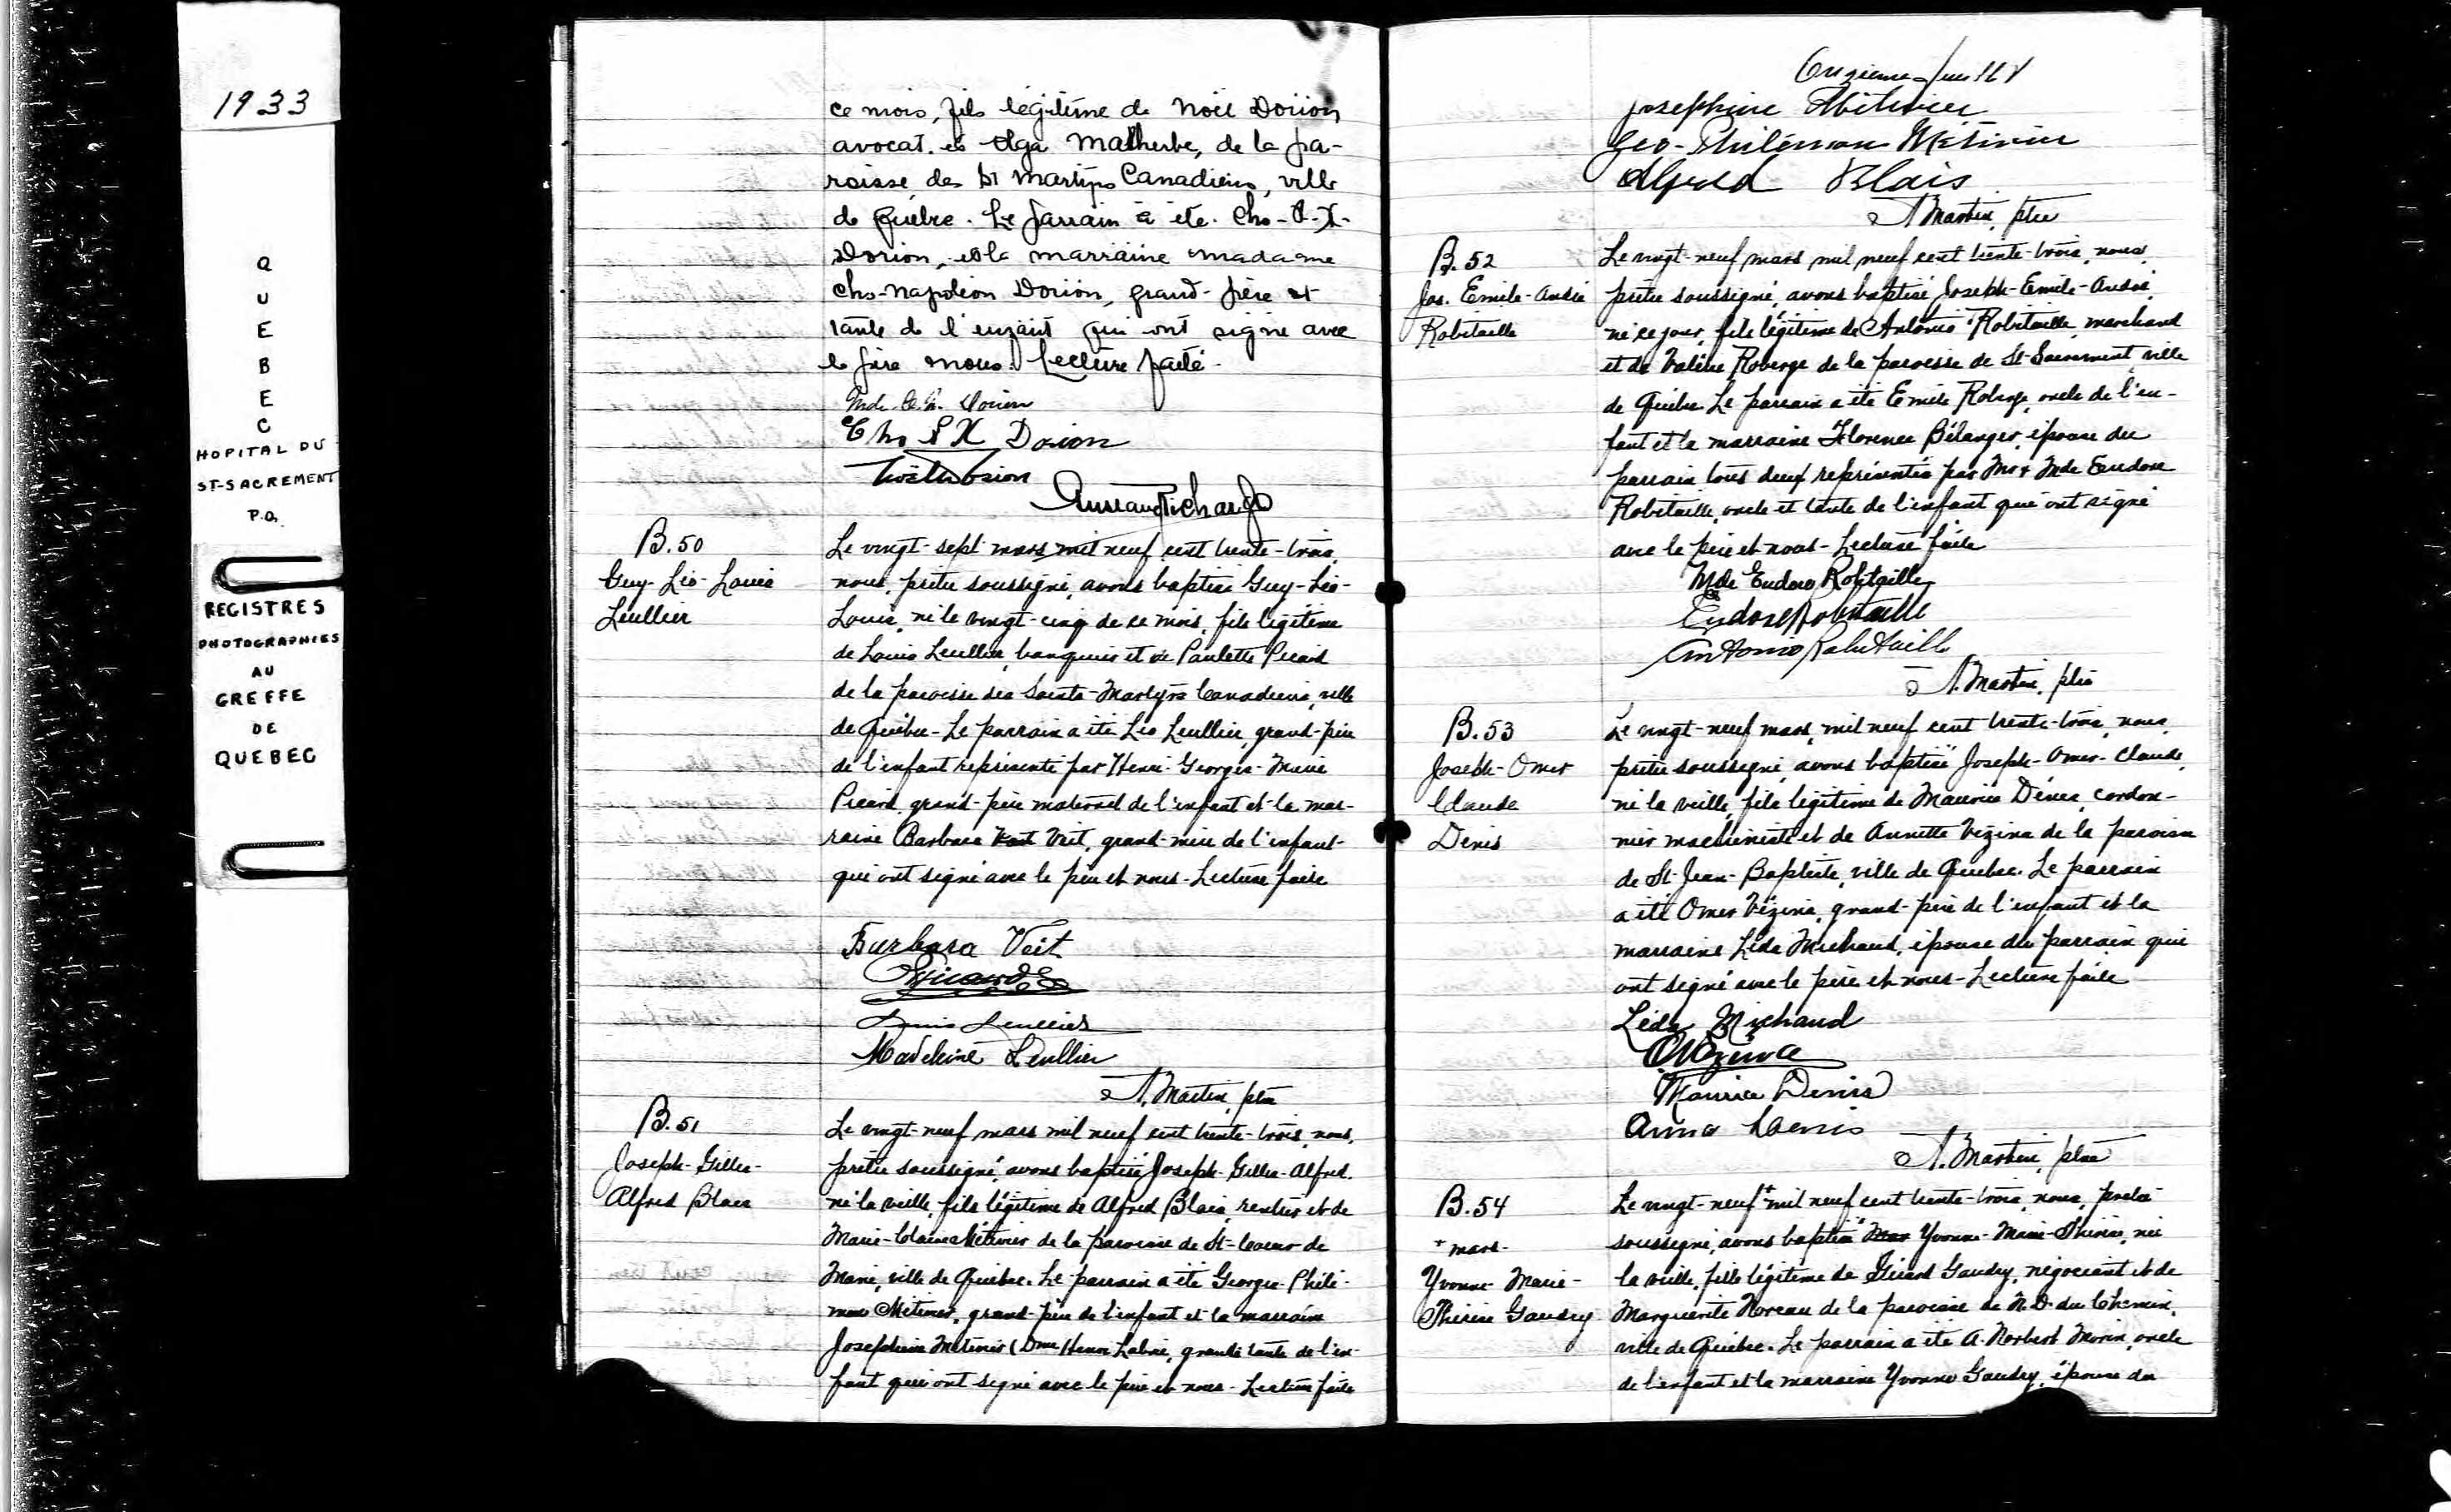 1933
QUEBEC
HOPITAL DU
ST-SACREMENT
P.Q.
REGISTRES
PHOTOGRAPHIES
AU
GREFFE
DE
QUEBEC
ce mois, fils légitime de Noël Dorion
avocat. et Olga Malherbe, de la pa-
roisse des Sts Martyrs Canadiens, ville
de Québec. Le parrain a été Chs-
Dorion, et la marraine madame
Chs-Napoléon Dorion, grand-père et
tante de l'enfant qui ont signé avec
le père et nous. Lecture faite.
Mde C.N. Dorion
Chs Dorion
Noël Dorion
B.50
Guy-Léo-Louis
Leullier
Le vingt-sept mars mil neuf cent trente-trois
nous, prêtre soussigné, avons baptisé Guy-Léo-
Louis, né le vingt-cinq de ce mois, fils légitime
de Louis Leullier, banquier et de Paulette Picard
de la paroisse des Saints-Martyrs Canadiens, ville
de Québec - Le parrain a été Léo Leullier, grand-père
de l'enfant représenté par Henri-Georges-Marie
Picard grand-père maternel de l'enfant et la mar-
raine Barbara Veit, grand-mère de l'enfant
qui ont signé avec le père et nous - Lecture faite
Barbara Veit
Picard
Louis Leullier
Madeleine Leullier
A. Martin, ptre
B.51
Joseph-Gilles-
Alfred Blais
Le vingt-neuf mars mil neuf cent trente-trois, nous,
prêtre soussigné, avons baptisé Joseph-Gilles-Alfred
né la veille, fils légitime de Alfred Blais, rentier et de
Marie-Claire Métivier de la paroisse de St-Coeur de
Marie, ville de Québec. Le parrain a été Georges-Philé-
mon Métivier, grand-père de l'enfant et la marraine
Josephine Métivier (Dme Henri Labrie, grande tante de l'en-
fant qui ont signé avec le père et nous - Lecture faite
Onzième
Josephine Métivier
Geo-Philémon Métivier
Alfred Blais
A Martin, ptre
B.52
Jos. Emile-André
Robitaille
Le vingt-neuf mars mil neuf cent trente-trois, nous
prêtre soussigné, avons baptisé Joseph-Emile-André,
né ce jour, fils légitime de Antonio Robitaille, marchand
et de Valérie Roberge de la paroisse de St-Sacrement, ville
de Québec Le parrain a été Emile Roberge, oncle de l'en-
fant et la marraine Florence Bélanger, épouse du
parrain tous deux représentés par Mr & Mde Eudore
Robitaille, oncle et tante de l'enfant qui ont signé
avec le père et nous - Lecture faite
Mde Eudore Robitaille
Eudore Robitaille
Antonio Robitaille
A. Martin, ptre
B.53
Joseph-Omer
Claude
Denis
Le vingt-neuf mars, mil neuf cent trente-trois, nous,
prêtre soussigné, avons baptisé Joseph-Omer-Claude,
né la veille, fils légitime de Maurice Denis, cordon-
nier machiniste et de Annette Vézina de la paroisse
de St-Jean-Baptiste, ville de Québec. Le parrain
a été Omer Vézina, grand-père de l'enfant et la
marraine Léda Michaud, épouse du parrain qui
ont signé avec le père et nous - Lecture faite
Léda Michaud
O Vézina
Maurice Denis
Anna Denis
A. Martin, ptre
B.54
+ mars-
Yvonne-Marie-
Thérèse Gaudry
Le vingt-neuf + mil neuf cent trente-trois, nous, prêtre
soussigné, avons baptisé Yvonne-Marie-Thérèse, née
la veille, fille légitime de Gérard Gaudry, négociant et de
Marguerite Noreau de la paroisse de N.D. du Chemin,
ville de Québec. Le parrain a été A. Norbert Morin, oncle
de l'enfant et la marraine Yvonne Gaudry, épouse du